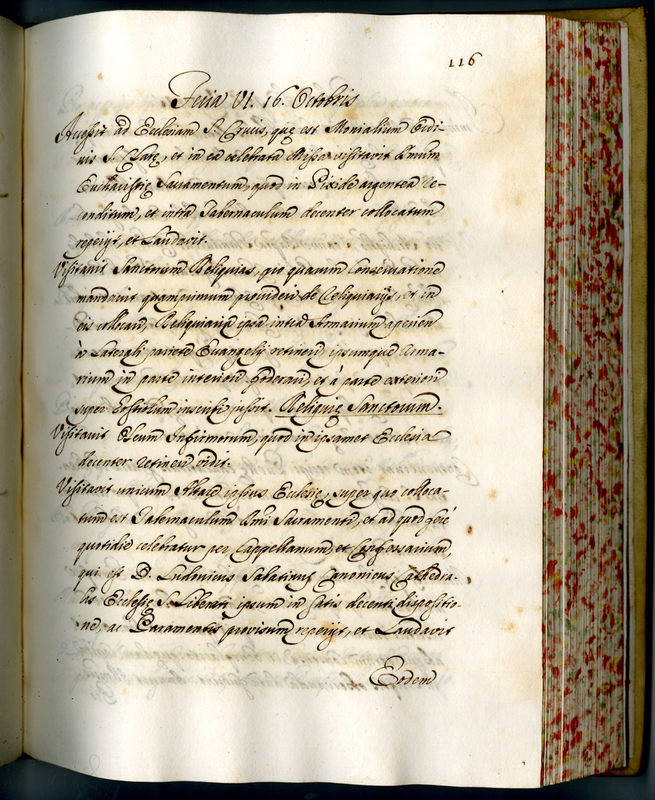 116
Feria VI. 16. Octobris
Accessit ad Ecclesiam S. Crucis, quę est Monialium Ordi-
nis S. Clarę, et in ea celebrata Missa visitavit
Eucharistię Sacramentum, quod in Pixide argentea re-
conditum, et intra Tabernaculum decenter collocatum
reperijt, et Laudavit.
Visitavit Sanctorum Reliquias, pro quarum conservatione
mandavit quamprimum provideri de Reliquiarijs, et in
eis collocari, Reliquiaria ipsa intra Armarium aperien
in Laterali pariete Evangelij retineri, ipsumque Arma-
rium in parte interiori foderari, et à parte exteriori
super Postiolum inscribi jussit. Reliquię Sanctorum.
Visitavit Oleum Infirmorum, quod in ipsamet Ecclesia
decenter retineri vidit.
Visitavit unicum Altare ipsius Ecclesię, super quo colloca-
tum est Tabernaculum Sacramenti, et ad quod ferè
quotidie celebratur per Cappellanum, et Confessarium,
qui est D. Ludovicus Sabatinus Canonicus Cathedra-
lis Ecclesię S. Liberati ipsum in satis decenti dispositio-
ne, ac Paramentis provisum reperijt, et Laudavit
Eodem